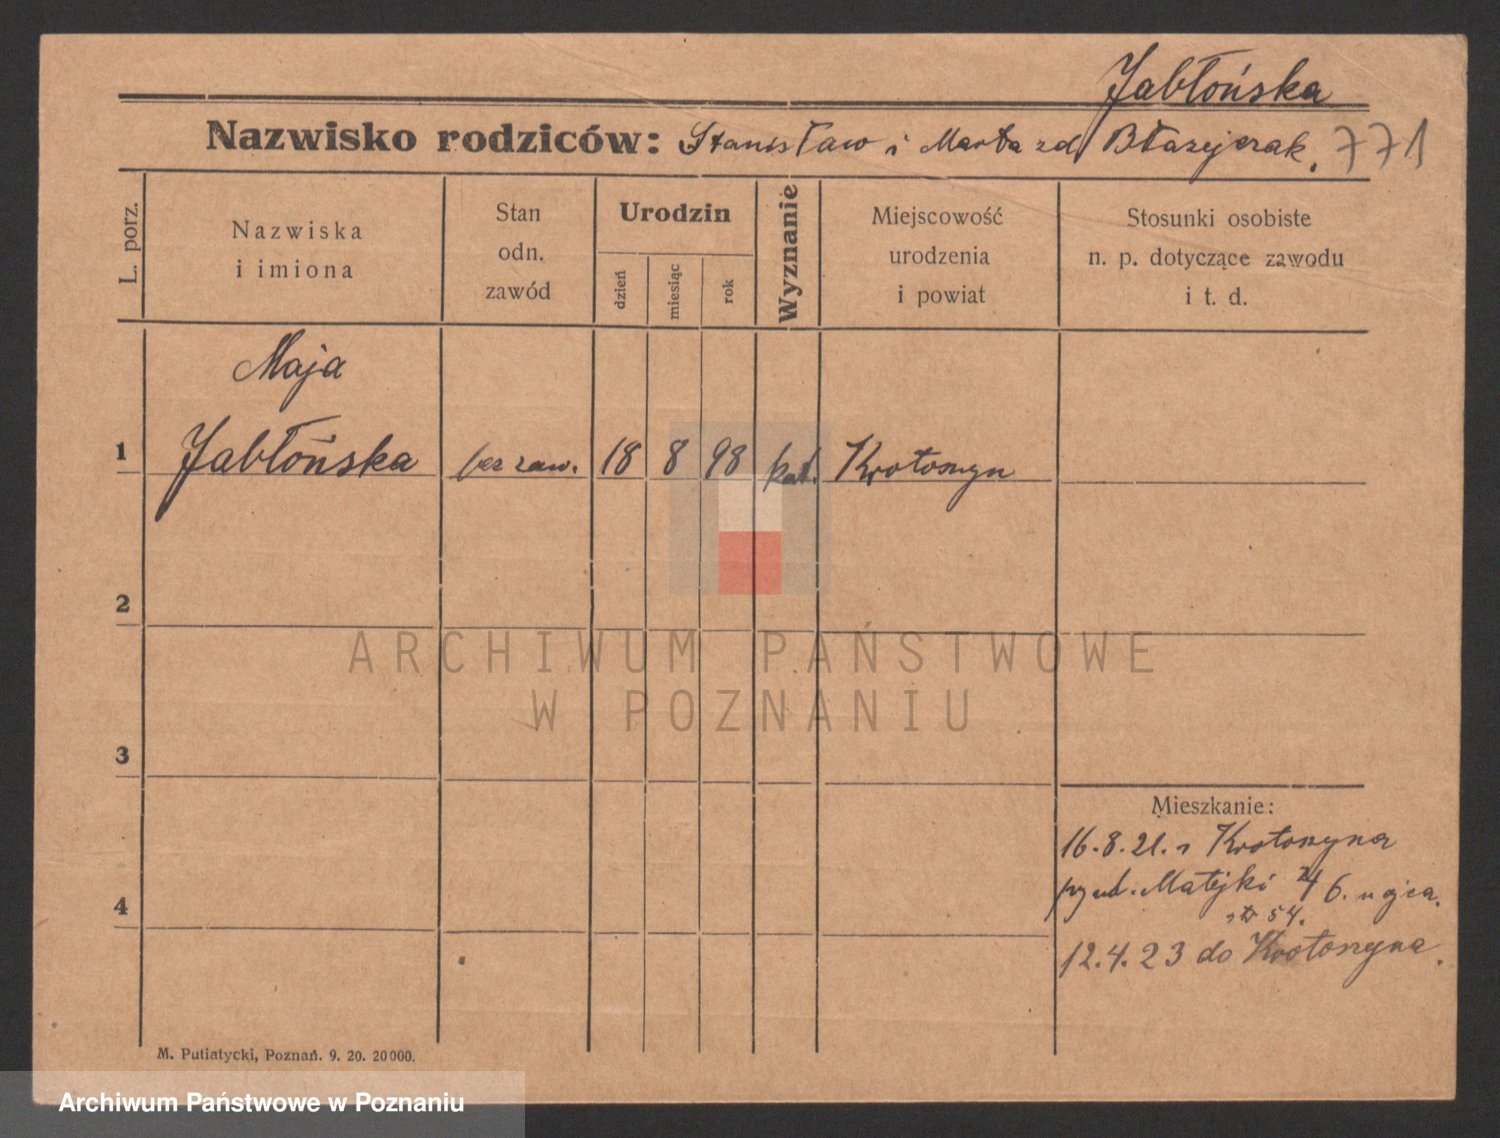 Jabłońska
Nazwisko rodziców: Stanisław i Marta zd Błazejczak. 771
L. porz.
Nazwiska
i imiona
Stan
odn.
zawód
Urodzin
dzień
miesiąc
rok
Wyznanie
Miejscowość
urodzenia
i powiat
Stosunki osobiste
n. p. dotyczące zawodu
i t. d.
Maja
1 Jabłońska bez zaw. 18 8 98 kat. Krotoszyn
2
3
4
Mieszkanie:
16.8.21. z Krotoszyna
Matejki 6. u ojca.
54.
12.4.23 do Krotoszyna.
M. Putiatycki, Poznań. 9. 20. 20000.
ARCHIWUM PAŃSTWOWE
W POZNANIU
Archiwum Państwowe w Poznaniu